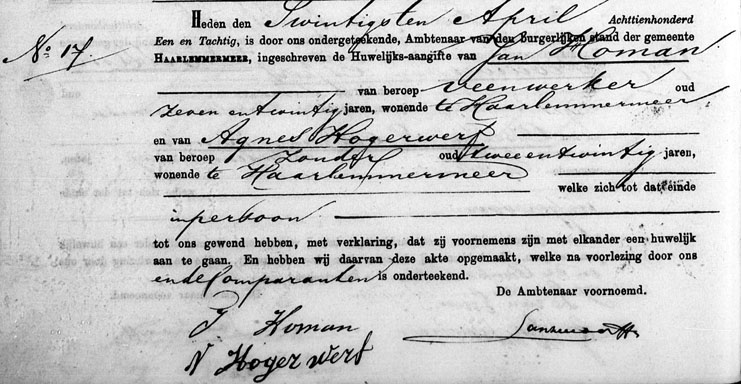 Heden den Twintigsten April Achttienhonderd
No 17. Een en Tachtig, is door ons ondergeteekende, Ambtenaar van den burgerlijken stand der gemeente
HAARLEMMERMEER, ingeschreven de Huwelijks-aangifte van Jan Homan
van beroep veenwerker oud
zeven en twintig jaren, wonende te Haarlemmermeer
en van Agnes Hogerwerf
van beroep Zonder oud tweeentwintig jaren,
wonende te Haarlemmermeer
welke zich tot dat einde
in persoon
tot ons gewend hebben, met verklaring, dat zij voornemens zijn met elkander een huwelijk
aan te gaan. En hebben wij daarvan deze akte opgemaakt, welke na voorlezing door ons
en de Comparanten is onderteekend.
De Ambtenaar voornoemd.
J Homan
N Hogerwerf